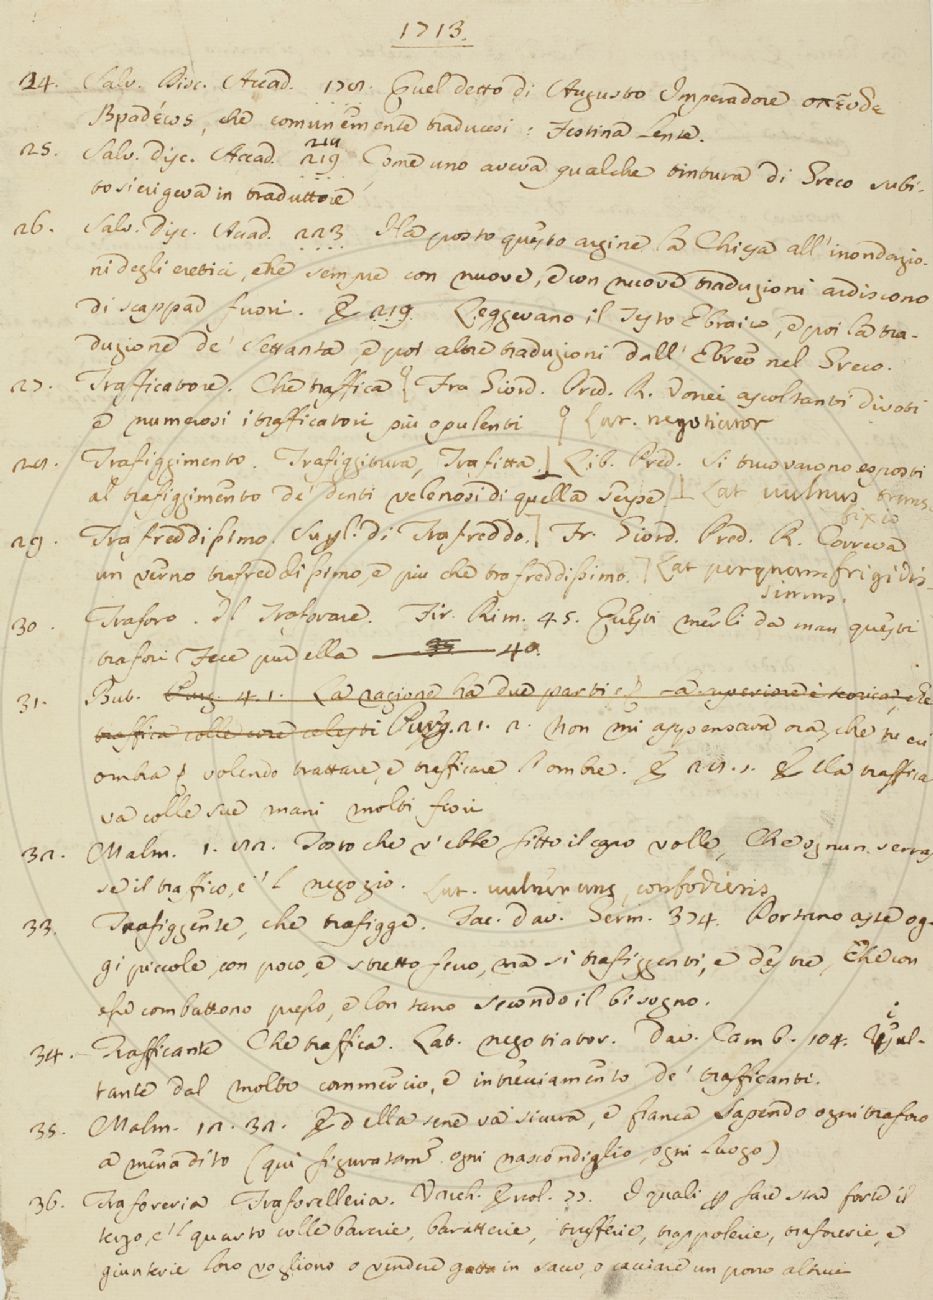 1713.
24. Salv. Disc. Accad. 178. Quel detto di Augusto Imperadore σπεῦδε
βραδέως, che comunemente traducesi: Festina lente.
25. Salv. Disc. Accad. 219 Come uno aveva qualche tintura di Greco subi-
to si erigeva in traduttore
26. Salv. Disc. Accad. 223 Ha posto questo argine la Chiesa all'inondazio-
ni degli eretici, che sempre con nuove, e con nuove traduzioni ardiscono
di scappar fuori. E 219. Leggevano il Testo Ebraico, e poi la tra-
duzione de' Settanta, e poi altre traduzioni dall'Ebreo nel Greco.
27. Trafficatore. Che traffica Fra Giord. Pred. R. Donei ascoltanti divoti
e numerosi i trafficatori più opulenti Lat. negotiator
28. Trafiggimento. Trafiggitura, Trafitta. Lib. Pred. Si trovarono esposti
al trafiggimento de' denti velenosi di quella serpe Lat vulnus trans-
fixio
29. Trafreddissimo. Superl. di Trafreddo. Fr. Giord. Pred. R. Correva
un verno trafreddissimo, e più che trafreddissimo. Lat perquam frigidis-
simus.
30. Traforo. Il Traforare. Fir. Rim. 45. Questi merli da man questi
trafori Fece pur ella 40.
31. But. Purg. 4. 1. La ragione ha due parti superiore è teorica, che
traffica colle cose celesti Purg. 21. 2. Non mi appensava ora, che tu eri
ombra volendo trattare, e trafficare l'ombre. E 28. 1. Ella traffica
va colle sue mani molti fiori
32. Malm. 1. 82. Tosto che v'ebbe fitto il capo volle, Che ognun serras
se il traffico, e 'l negozio. Lat. vulnerans, confodiens
33. Trafiggente, che trafigge. Tac. Dav. Germ. 374. Portano aste og-
gi piccole, con poco, e stretto ferro, ma si trafiggenti, e destre, Che con
esse combattono presso, e lontano secondo il bisogno.
34. Trafficante Che traffica. Lat. negotiator. Dav. Camb. 104. Risul-
tante dal molto commercio, e intrecciamento de' trafficanti.
35. Malm. 12. 32. Ed ella sene va sicura, e franca Sapendo ogni traforo
a menadito (qui figuratam. ogni nascondiglio, ogni luogo)
36. Traforeria Traforelleria. Varch. Ercol. 77. I quali p fare star forte il
terzo, e 'l quarto colle barerie, baratterie, trufferie, trappolerie, traforerie, e
giunterie loro vogliono o vendere gatta in sacco, o cacciare un porro altrui